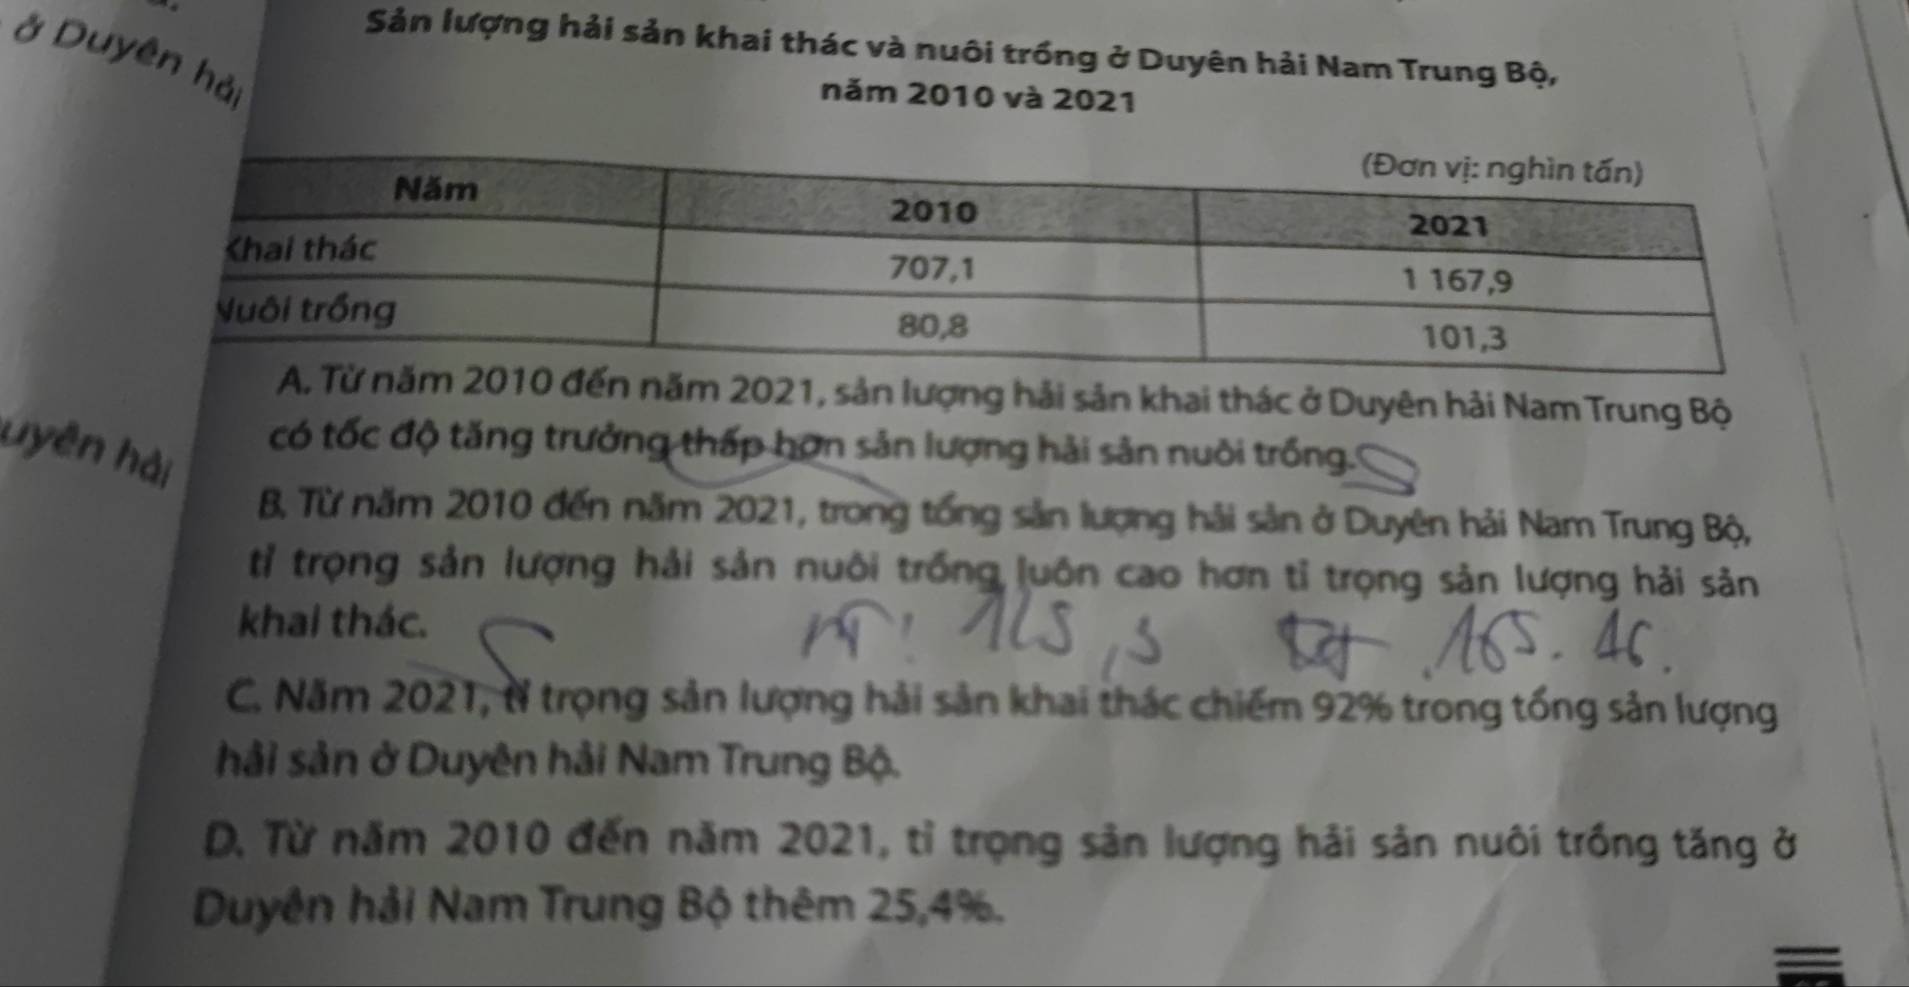 ở Duyên hải
Sản lượng hải sản khai thác và nuôi trồng ở Duyên hải Nam Trung Bộ,
năm 2010 và 2021
(Đơn vị: nghìn tấn)
Năm 2010 2021
Khai thác 707,1 1 167,9
Nuôi trồng 80,8 101,3
A. Từ năm 2010 đến năm 2021, sản lượng hải sản khai thác ở Duyên hải Nam Trung Bộ
có tốc độ tăng trưởng thấp hơn sản lượng hải sản nuôi trồng.
uyên hải
B. Từ năm 2010 đến năm 2021, trong tổng sản lượng hải sản ở Duyên hải Nam Trung Bộ,
tỉ trọng sản lượng hải sản nuôi trồng luôn cao hơn tỉ trọng sản lượng hải sản
khai thác.
C. Năm 2021, tỉ trọng sản lượng hải sản khai thác chiếm 92% trong tổng sản lượng
hải sản ở Duyên hải Nam Trung Bộ.
D. Từ năm 2010 đến năm 2021, tỉ trọng sản lượng hải sản nuôi trồng tăng ở
Duyên hải Nam Trung Bộ thêm 25,4%.